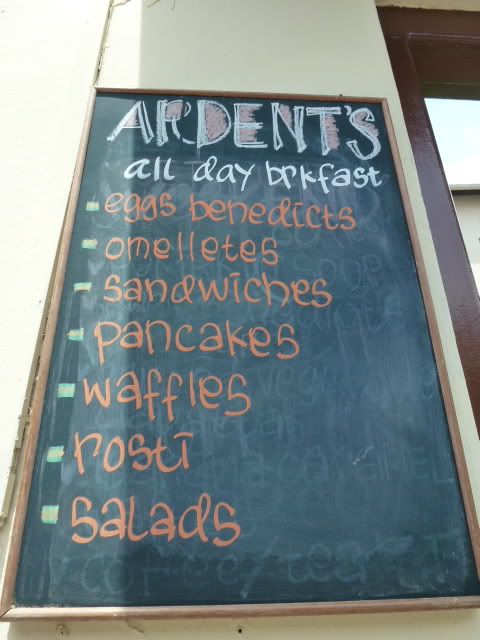 ARDENT'S
all day brkfast
eggs benedicts
omelletes
sandwiches
pancakes
waffles
rosti
salads
coffee/tea